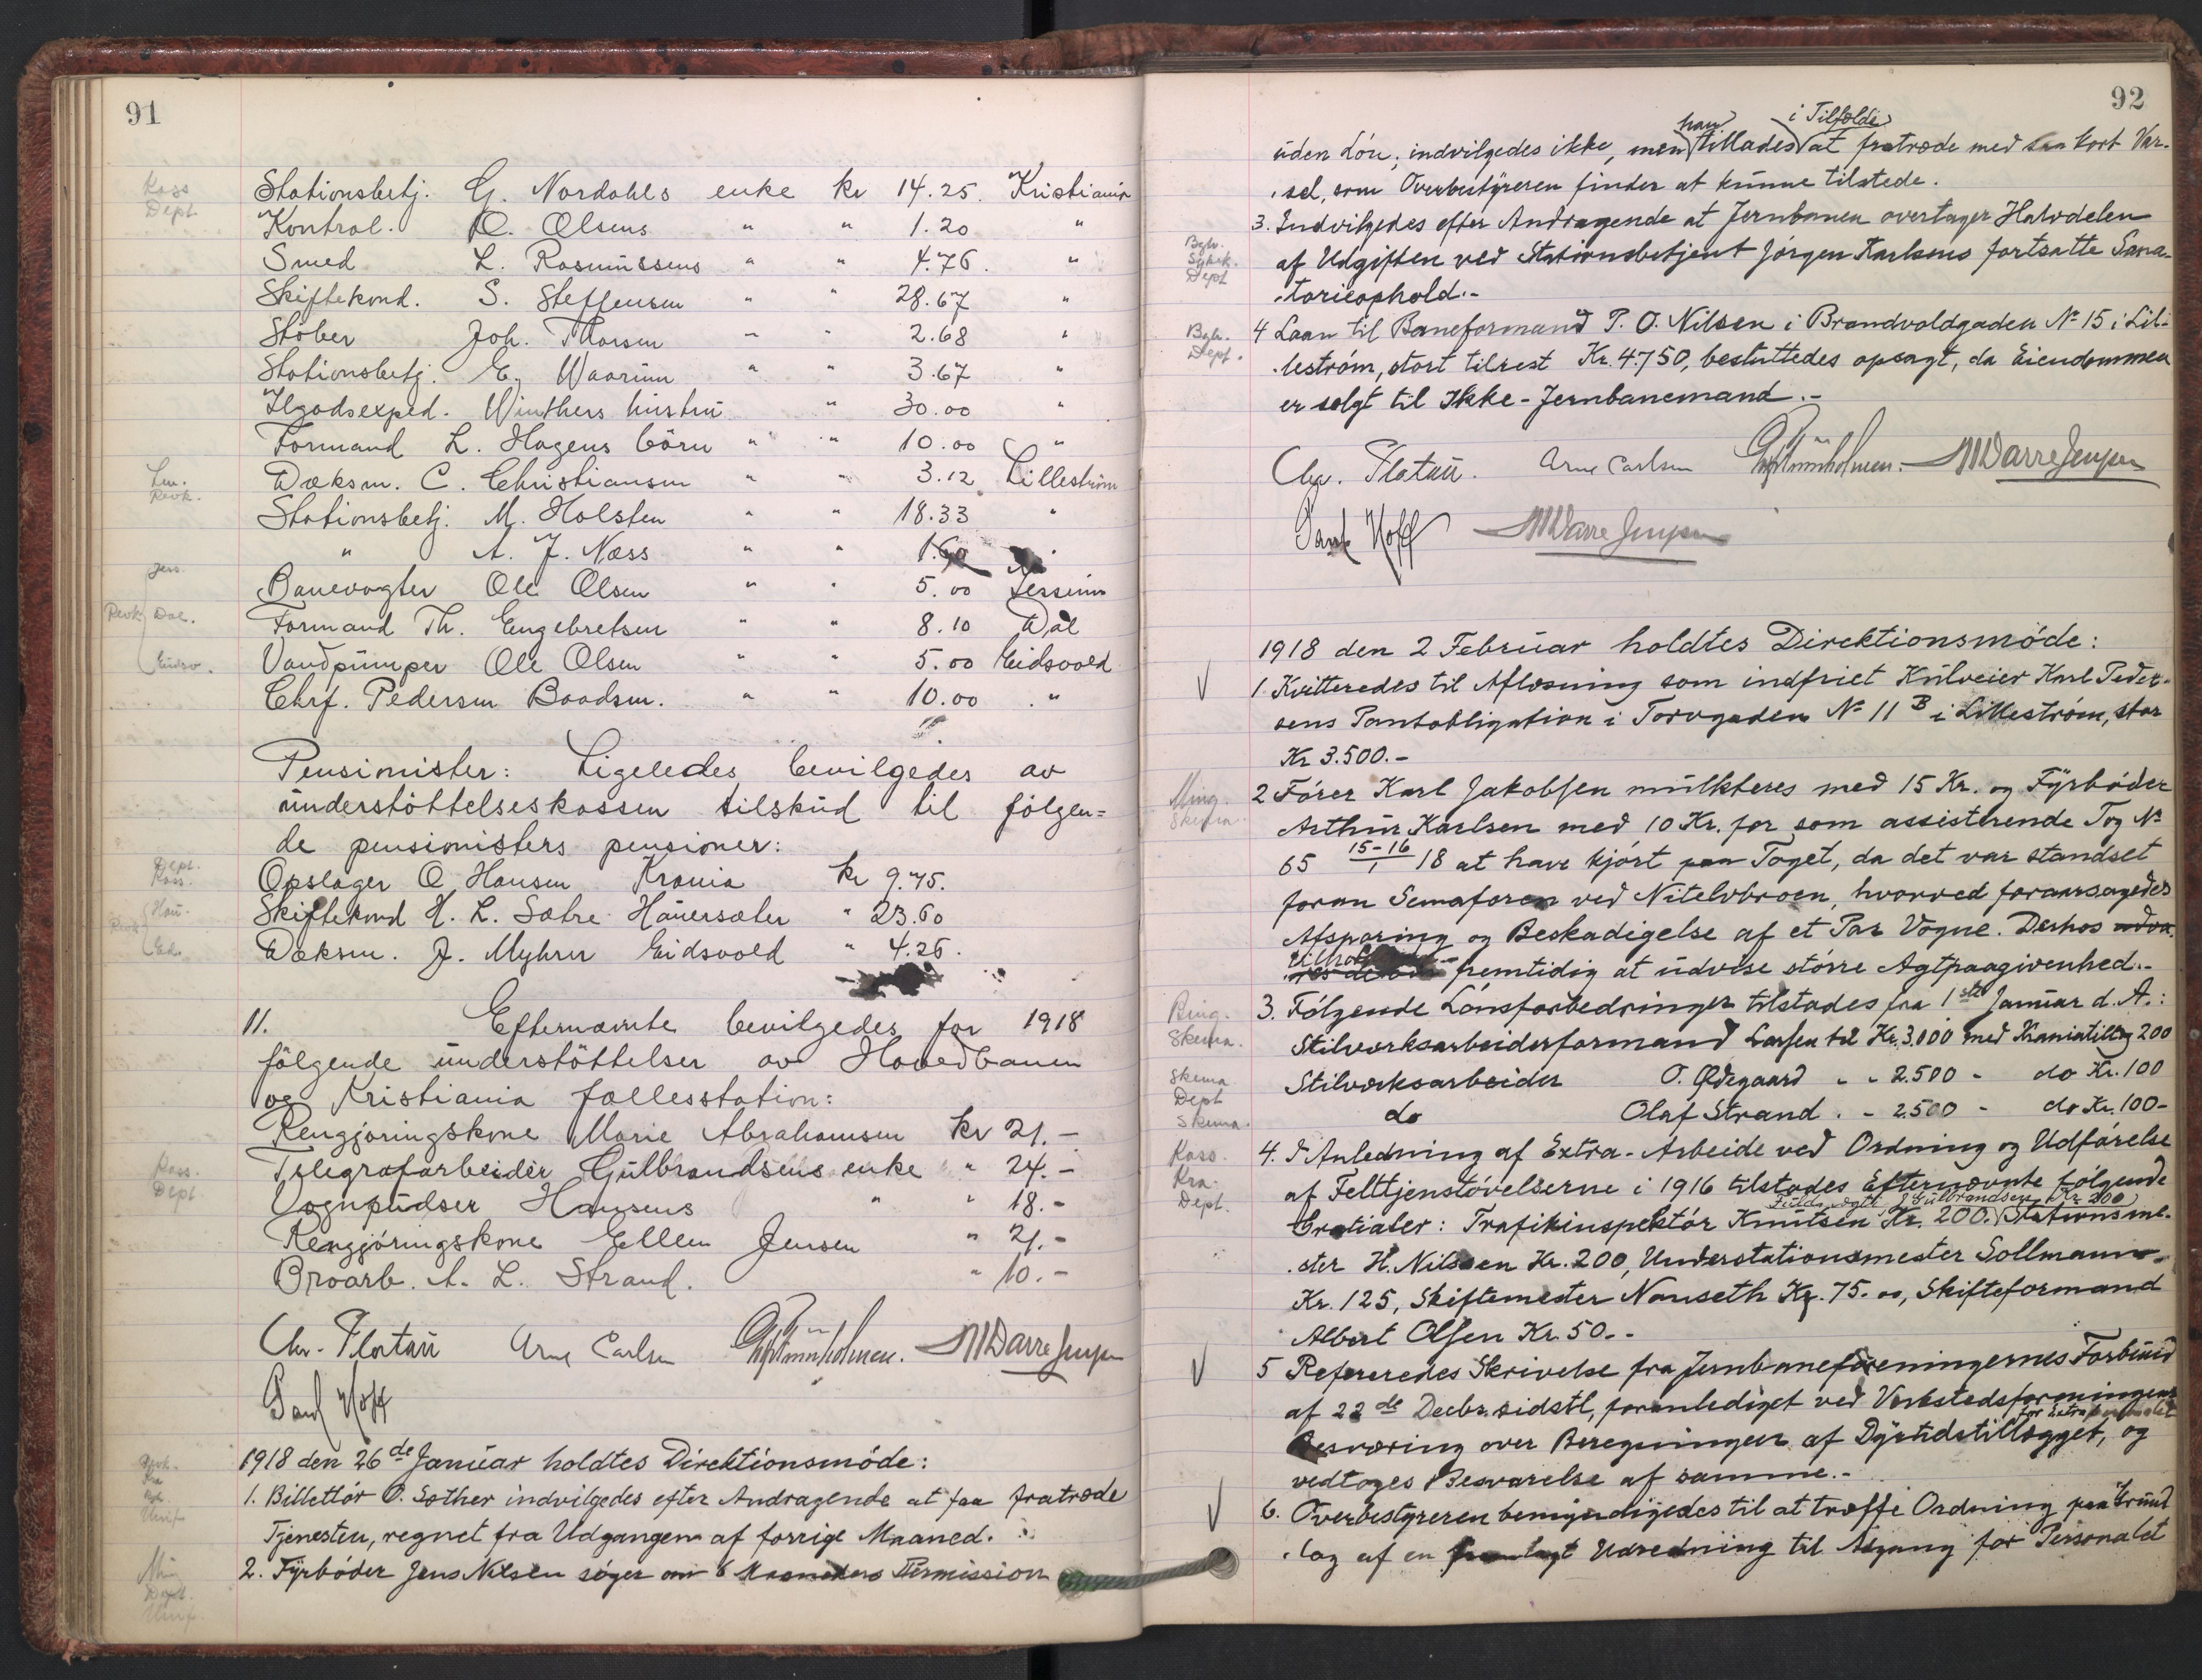 91
Kass
Dept.
Stationsbetj. G. Nordahls enke kr 14.25. Kristiania
Kontrol. O. Olsens " " 1.20 "
Smed L. Rasmussens " " 4.76. "
Skiftekond. S. Steffensen " " 28.67 "
Støber Joh. Thorsen " " 2.68 "
Stationsbetj. E. Waarum " " 3.67 "
Ilgodsexped. Winthers hustru " 30.00 "
Formand L. Hagens börn " " 10.00 "
Dæksm. C. Christiansen " " 3.12 Lilleström
Stationsbetj. M. Holsten " " 18.33 "
" A. J. Næss " " 1.60 "
Banevogter Ole Olsen " " 5.00 Jessum
Formand Th. Engebretsen " " 8.10 Dal
Vandpumper Ole Olsen " " 5.00 Eidsvold
Chrf. Pedersen Baadsm. " " 10.00 "
Pensionister: Ligeledes bevilgedes av
understöttelseskassen tilskud til følgen=
de pensionisters pensioner:
Opslager O Hansen Krania kr 9.75.
Skiftekond H. L. Sætre Hauersæter " 23.60
Dæksm. J. Myhrer Eidsvold " 4.26.
11. Efternævnte bevilgedes for 1918
følgende understöttelser av Hovedbanen
og Kristiania fællesstation:
Rengjøringskone Marie Abrahamsen kr 21.-
Telegrafarbeider Gulbrandsens enke " 24.-
Vognpudser Hansens " " 18.-
Rengjöringskone Ellen Jensen " 21.-
Broarb. A. L. Strand. " 10.-
Chr. Platou Arne Carlsen MWarre Jensen
Paul Hoff
1918 den 26de Januar holdtes Direktionsmøde:
1. Billettør O. Sæther indvilgedes efter Andragende at faa fratræde
Tjenesten, regnet fra Udgangen af forrige Maaned.
2. Fyrbøder Jens Nilsen søger om 6 Maaneders Permission
92
han i Tilfælde
uden Løn; indvilgedes ikke, men tillades at fratræde med saa kort Var-
sel, som Overbestyreren finder at kunne tilstede.
3. Indvilgedes efter Andragende at Jernbanen overtager Halvdelen
af Udgiften ved Stationsbetjent Jørgen Karlsens fortsatte Sana-
torieophold.-
4 Laan til Baneformand P. O. Nilsen i Brandvoldgaden No 15 i Lil-
lestrøm, stort tilrest Kr. 4.750, besluttedes opsagt, da Eiendommen
er solgt til Ikke-Jernbanemand.-
Chr. Platou. Arne Carlsen MWarre Jensen
Paul Hoff MWarre Jensen
1918 den 2 Februar holdtes Direktionsmøde:
1. Kvitteredes til Aflæsning som indfriet Kulveier Karl Peder-
sens Pantobligation i Torvgaden No 11 B i Lillestrøm, stor
Kr 3.500.-
2 Fører Karl Jakobsen mulkteres med 15 Kr. og Fyrbøder
Arthur Karlsen med 10 Kr. for som assisterende Tog No
65 15-16/1 18 at have kjørt paa Toget, da det var standset
foran Semaforen ved Nitelvbroen, hvorved foraarsagedes
Afsporing og Beskadigelse af et Par Vogne. Derhos
fremtidig at udvise større Agtpaagivenhed.-
3. Følgende Lønsforbedringer tilstades fra 1ste Januar d. A.:
Stilverksarbeiderformand Larsen til Kr. 3.000 med Kraniatillæg 200
Stilverksarbeider O. Ødegaard - - 2.500 - do Kr. 100
do Olaf Strand. - 2500 - do Kr. 100-
4. I Anledning af Extra-Arbeide ved Ordning og Udførelse
af Felttjenstøvelserne i 1916 tilstades Efternævnte følgende
Fuldm. Gulbrandsen Kr 200
Gratialer: Trafikinspektør Knutsen Kr. 200. Stationsme-
ster H. Nilssen Kr. 200, Understationsmester Sollmann
Kr. 125, Skiftemester Nauseth Kr. 75.00, Skifteformand
Albert Olsen Kr. 50.-
5 Refereredes Skrivelse fra Jernbaneforeningernes Forbund
af 22de Decbr. sidstl, foranlediget ved Verkstedsforeningens
for Extrapersonalet
Besværing over Beregningen af Dyrtidstillægget, og
vedtoges Besvarelse af samme.-
6. Overbestyreren bemyndigedes til at træffe Ordning paa Grund-
lag af en fremlagt Udredning til Adgang for Personalet